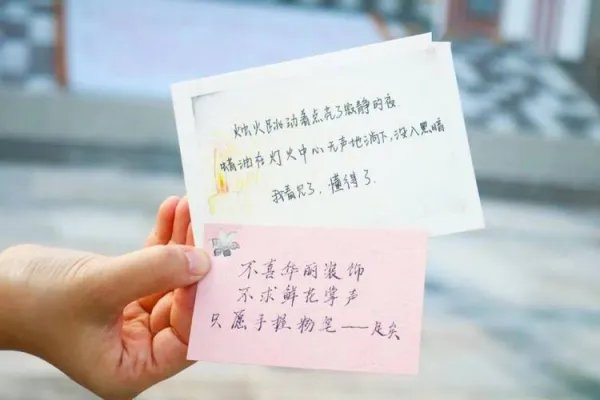 烛火晃动着点亮了寂静的夜
蜡油在灯火中心无声地淌下，没入黑暗
我看见了，懂得了.
不喜华丽装饰
不求鲜花掌声
只愿手握粉笔——足矣